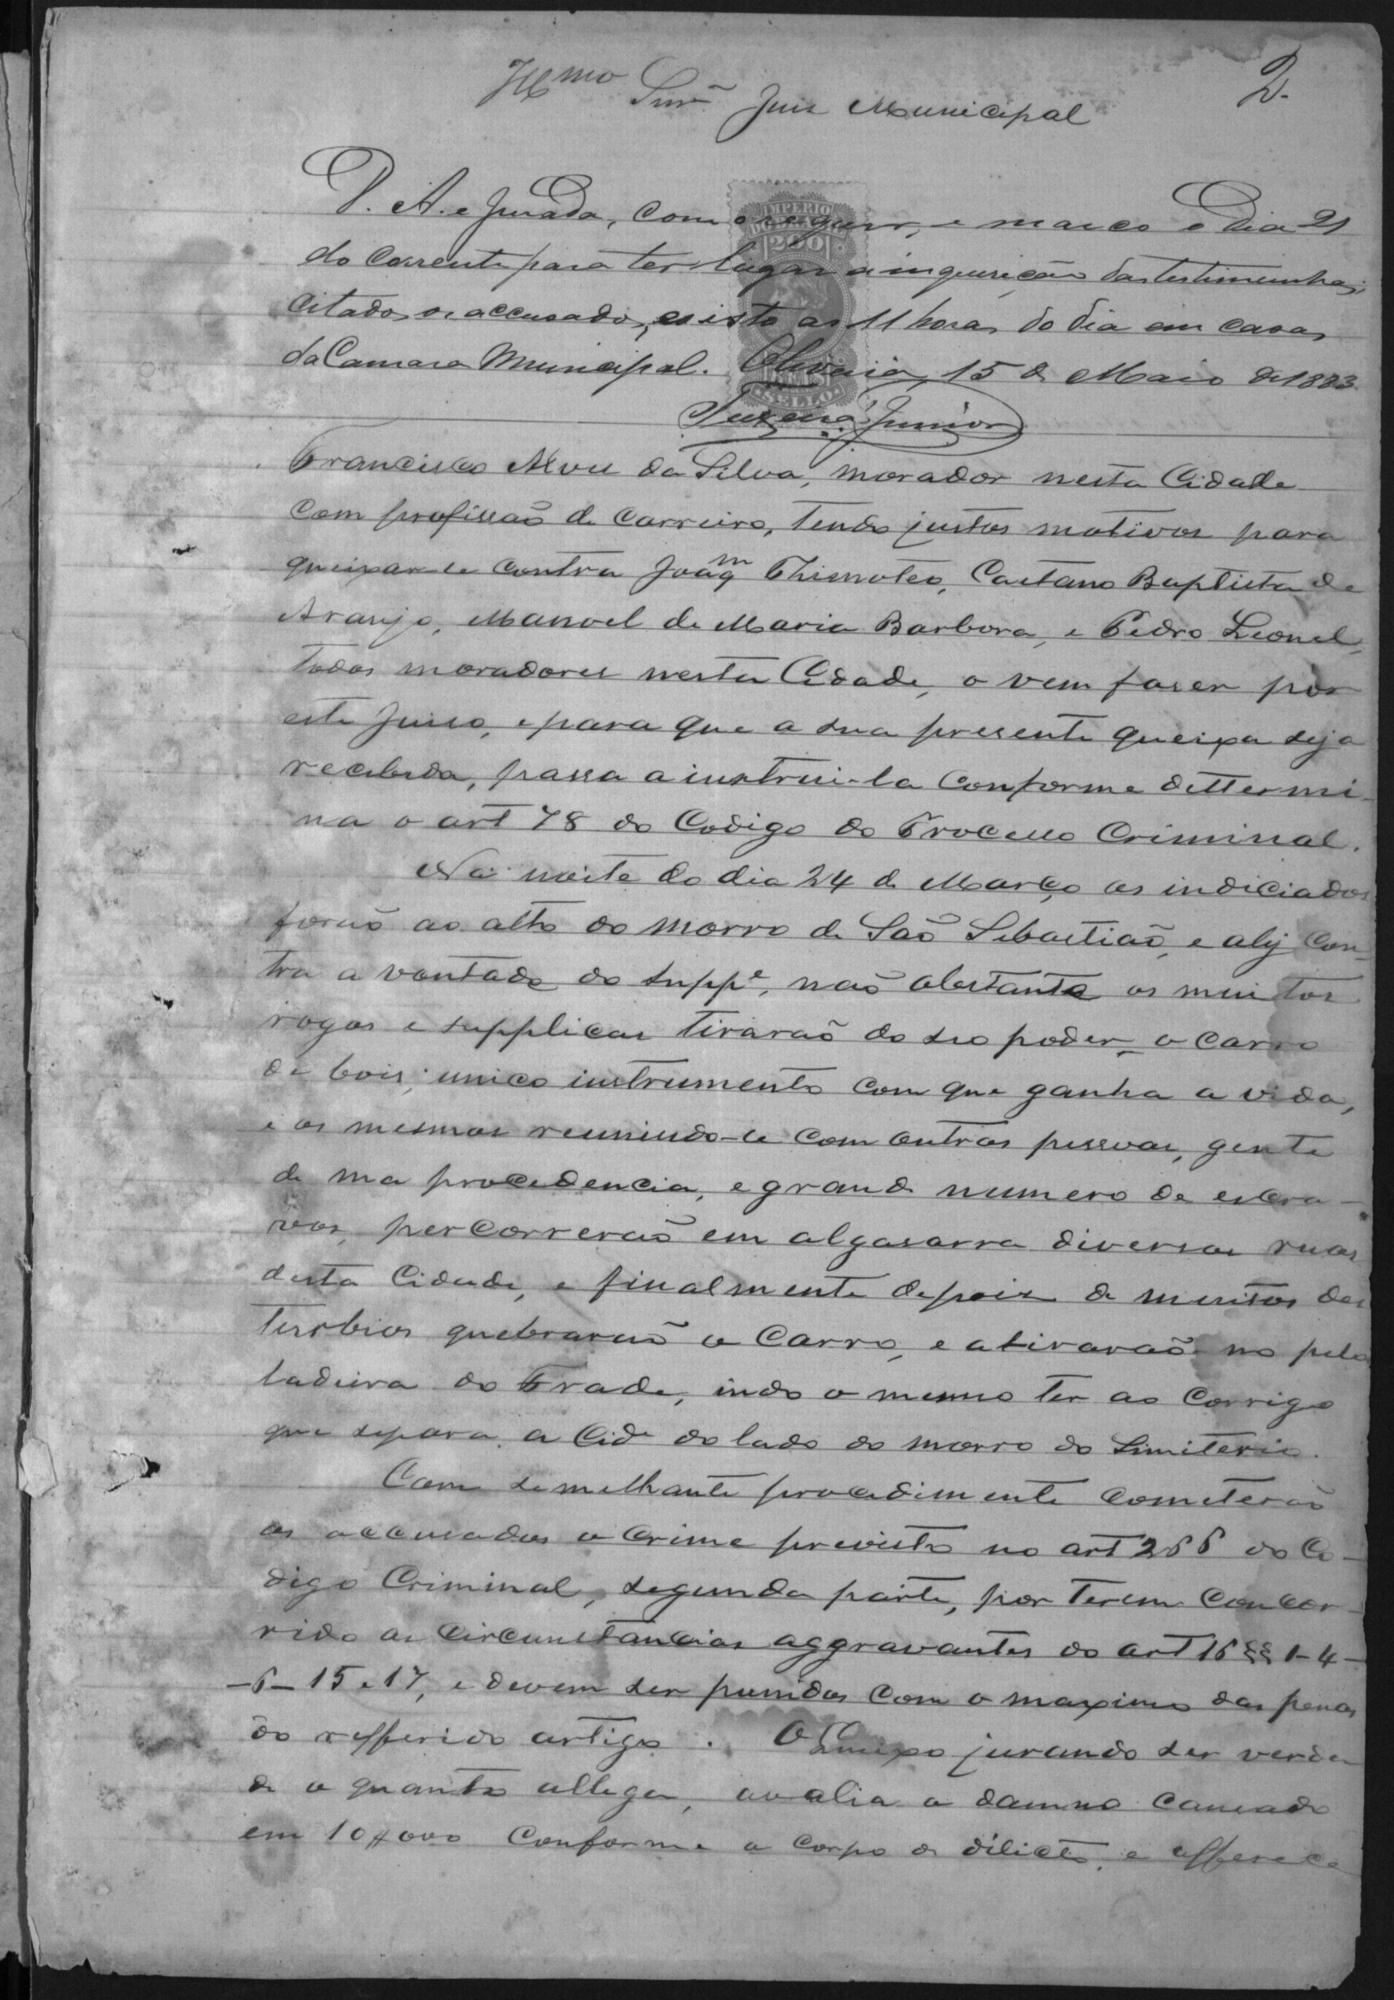 2.
Illmo Snr. Juis Municipal
D. A. e jurada, como requer, e marco o dia 21
do corrente para ter lugar a inquirição das testimunhas,
citados os accusados, e isto as 11 horas do dia em casas
da Camara Municipal. Oliveira, 15 de Maio de 1883
Teixeira Junior
IMPERIO
DO BRAZIL
200
REIS
SELLO
Francisco Alves da Silva, morador nesta Cidade
com profissaõ de carreiro, tendo justos motivos para
queixar-se contra Joaqm Thimoteo, Caetano Baptista de
Araujo, Manoel de Maria Barbora, e Pedro Leonel,
todos moradores nesta Cidade, o vem faser por
este Juiso, e para que a sua presente queixa seja
recebida, passa a instrui-la conforme dettermi-
na o art 78 do Codigo do Processo Criminal.
Na noite do dia 24 de Março os indiciados
foraõ ao alto do morro de Saõ Sebastiaõ, e aly con-
tra a vontade do suppe, naõ obstante os muitos
rogos e supplicas tiraraõ do seo poder o carro
de bois, unico instrumento com que ganha a vida,
e os mesmos reunindo-se com outras pessoas, gente
de ma procedencia, e grande numero de escra-
vos, percorreraõ em algasarra diversas ruas
desta Cidade, e finalmente depois de muitos des
turbios quebraraõ o carro, e atiraraõ no pela
ladeira do Frade, indo o mesmo ter ao corrigo
que separa a Cide do lado do morro do Simiterio.
Com semelhante procedimento cometeraõ
os accusados o crime previsto no art 266 do Co-
digo Criminal, segunda parte, por terem concor-
rido as circunstancias aggravantes do art 16 §§ 1-4-
-6-15 e 17, e devem ser punidos com o maximo das penas
do refferido artigo. O Suppe jurando ser verda
de o quanto allega, avalia o damno causado
em 10$000 conforme o corpo de dilicto, e offerece